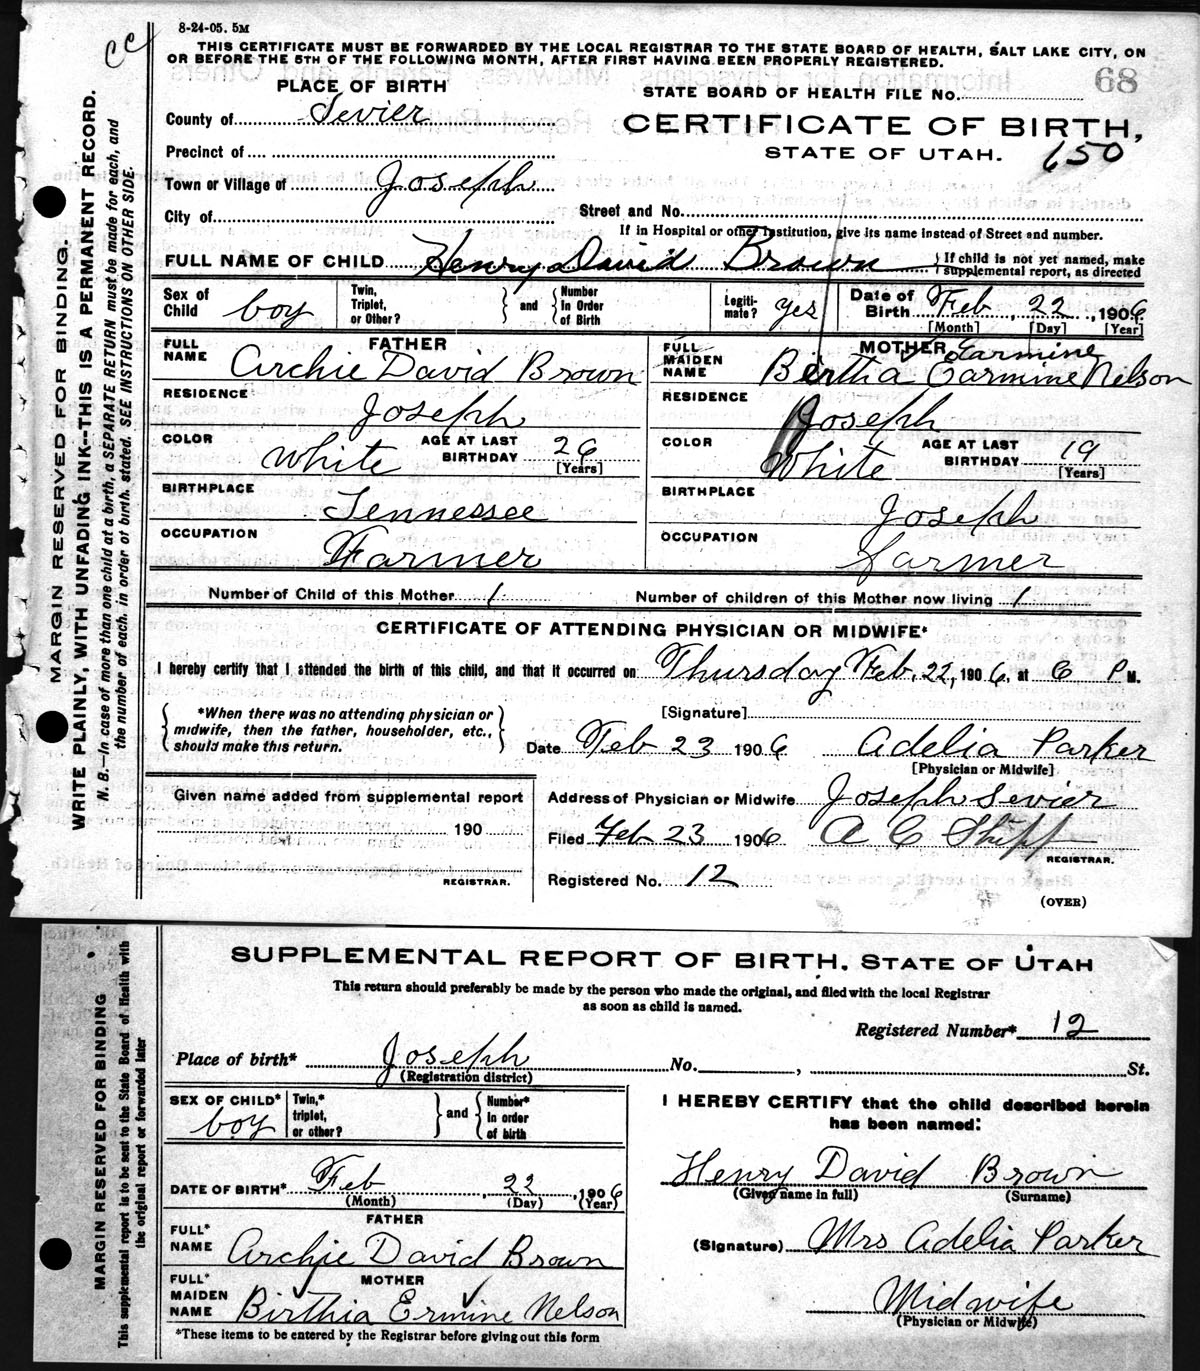 8-24-05. 5M
CC
THIS CERTIFICATE MUST BE FORWARDED BY THE LOCAL REGISTRAR TO THE STATE BOARD OF HEALTH, SALT LAKE CITY, ON
OR BEFORE THE 5TH OF THE FOLLOWING MONTH, AFTER FIRST HAVING BEEN PROPERLY REGISTERED.
PLACE OF BIRTH
STATE BOARD OF HEALTH FILE No. 68
County of Sevier
CERTIFICATE OF BIRTH,
Precinct of
STATE OF UTAH. 650
Town or Village of Joseph
City of
Street and No.
If in Hospital or other Institution, give its name instead of Street and number.
FULL NAME OF CHILD Henry David Brown } If child is not yet named, make supplemental report, as directed
Sex of Child boy Twin, Triplet, or Other? } and { Number In Order of Birth Legiti- mate? yes Date of Birth Feb 22, 1906
[Month] [Day] [Year]
FATHER
FULL NAME Archie David Brown
RESIDENCE Joseph
COLOR White AGE AT LAST BIRTHDAY 26 [Years]
BIRTHPLACE Tennessee
OCCUPATION Farmer
MOTHER Earmine
FULL MAIDEN NAME Birtha Earmine Nelson
RESIDENCE Joseph
COLOR White AGE AT LAST BIRTHDAY 19 [Years]
BIRTHPLACE Joseph
OCCUPATION farmer
Number of Child of this Mother 1 Number of children of this Mother now living 1
CERTIFICATE OF ATTENDING PHYSICIAN OR MIDWIFE*
I hereby certify that I attended the birth of this child, and that it occurred on Thursday Feb. 22, 1906, at 6 P M.
{ *When there was no attending physician or midwife, then the father, householder, etc., should make this return. }
[Signature]
Date Feb 23 1906 Adelia Parker
[Physician or Midwife]
Given name added from supplemental report
190
REGISTRAR.
Address of Physician or Midwife Joseph Sevier
Filed Feb 23 1906 A C Shipp
REGISTRAR.
Registered No. 12
(OVER)
MARGIN RESERVED FOR BINDING.
WRITE PLAINLY, WITH UNFADING INK--THIS IS A PERMANENT RECORD.
N. B.—In case of more than one child at a birth, a SEPARATE RETURN must be made for each, and
the number of each, in order of birth, stated. SEE INSTRUCTIONS ON OTHER SIDE.
SUPPLEMENTAL REPORT OF BIRTH, STATE OF UTAH
This return should preferably be made by the person who made the original, and filed with the local Registrar
as soon as child is named.
Registered Number* 12
Place of birth* Joseph No. , St.
(Registration district)
SEX OF CHILD* boy Twin,* triplet, or other? } and { Number* In order of birth
DATE OF BIRTH* Feb 22, 1906
(Month) (Day) (Year)
FATHER
FULL* NAME Archie David Brown
MOTHER
FULL* MAIDEN NAME Birthia Ermine Nelson
*These items to be entered by the Registrar before giving out this form
I HEREBY CERTIFY that the child described herein
has been named:
Henry David Brown
(Given name in full) (Surname)
(Signature) Mrs Adelia Parker
Midwife
(Physician or Midwife)
MARGIN RESERVED FOR BINDING
This supplemental report is to be sent to the State Board of Health with
the original report or forwarded later